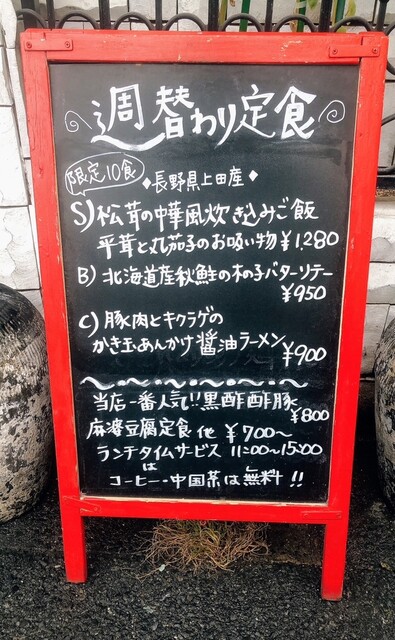 週替わり定食
限定10食
◆長野県上田産◆
S)松茸の中華風炊き込みご飯
平茸と丸茄子のお吸い物 ¥1,280
B) 北海道産秋鮭の木の子バターソテー
¥950
C) 豚肉とキクラゲの
かき玉あんかけ醤油ラーメン ¥900
当店一番人気!!黒酢酢豚 ¥800
麻婆豆腐定食 他 ¥700〜
ランチタイムサービス 11:00〜15:00
は
コーヒー・中国茶は無料!!